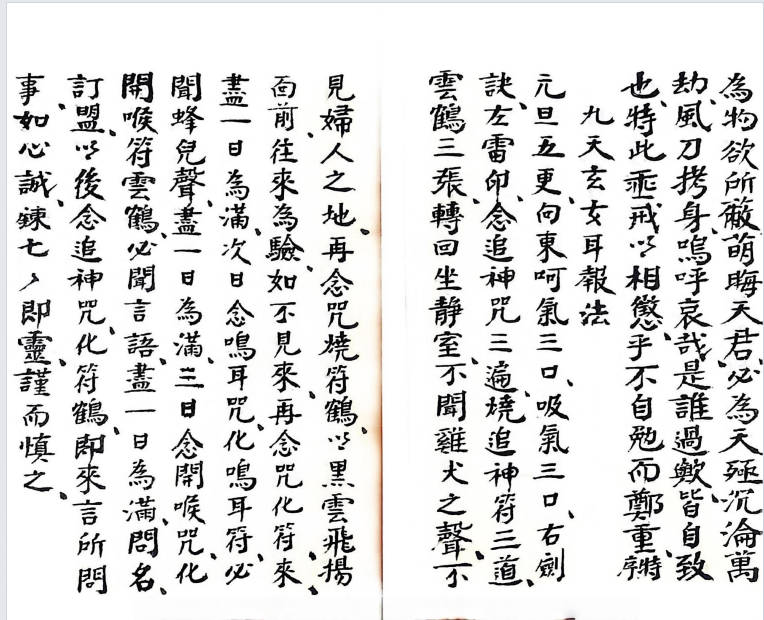 為物欲所蔽萌晦天君必為天殛沉淪萬
劫風刀拷身嗚呼哀哉是誰過歟皆自致
也特此垂戒以相懲乎不自勉而鄭重特序
九天玄女耳報法
元旦五更向東呵氣三口、吸氣三口、右劍
訣、左雷印、念追神咒三遍、燒追神符三道、
雲鶴三張、轉回坐静室、不聞雞犬之聲、不
見婦人之地、再念咒燒符鶴、以黒雲飛揚
面前、往來為驗、如不見來、再念咒化符來、
盡一日為滿、次日念鳴耳咒、化鳴耳符、必
聞蜂兒聲、盡一日為滿、三日念開喉咒、化
開喉符雲鶴、必聞言語、盡一日為滿、問名、
訂盟、以後念追神咒、化符鶴、即來言所問
事、如心誠、錬七々即靈、謹而慎之、